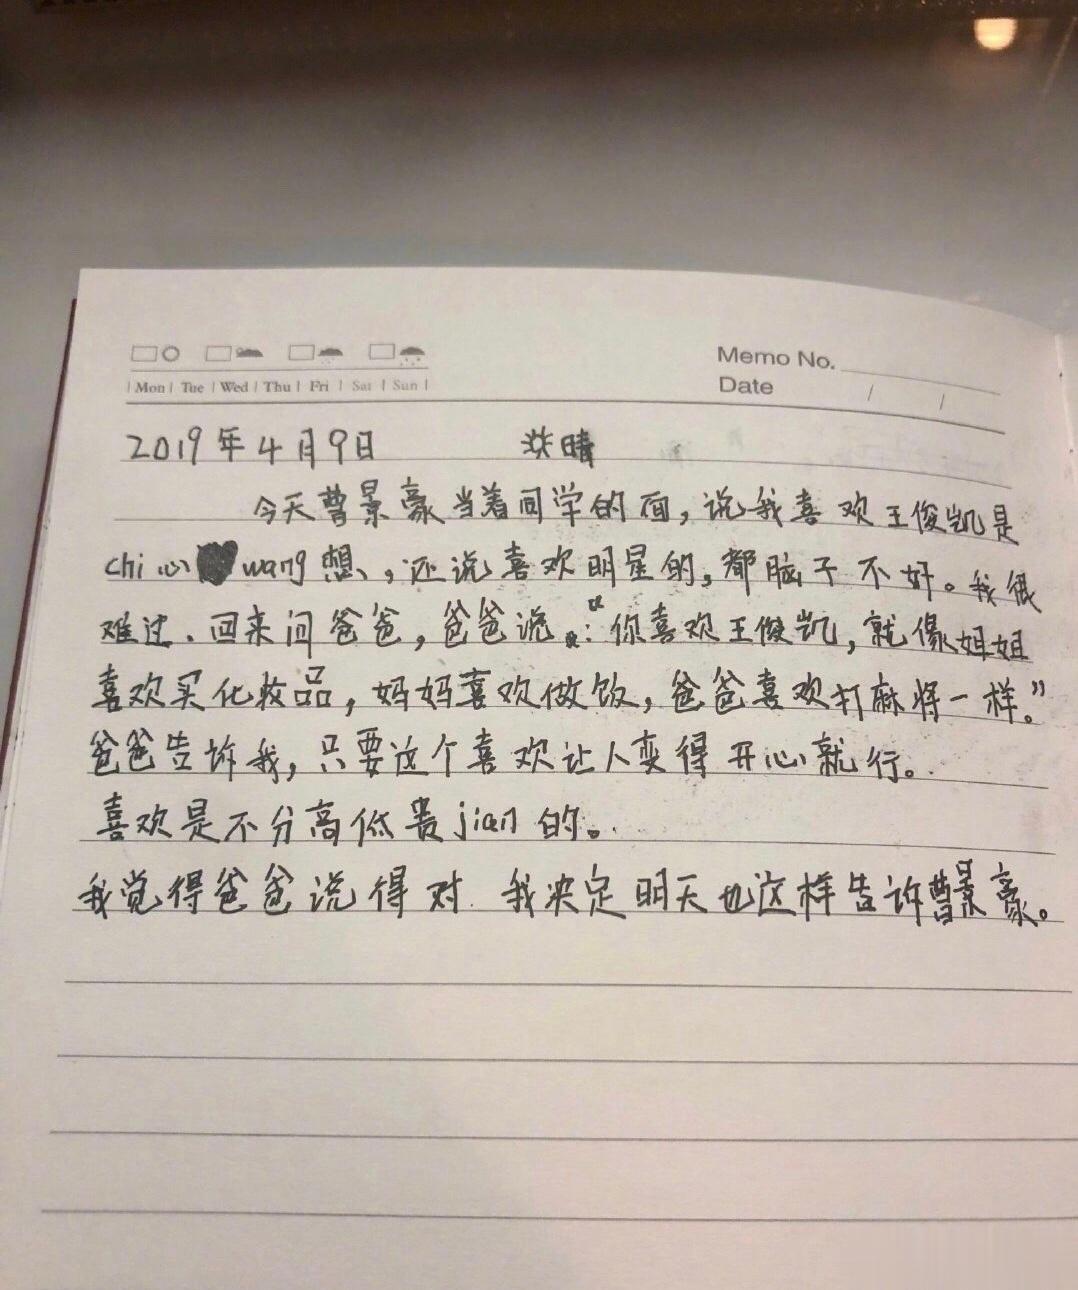 Mon Tue Wed Thu Fri Sat Sun
Memo No.
Date / /
2019年4月9日 晴
今天曹景豪当着同学的面，说我喜欢王俊凯是
chi心wang想，还说喜欢明星的，都脑子不好。我很
难过．回来问爸爸，爸爸说：“你喜欢王俊凯，就像姐姐
喜欢买化妆品，妈妈喜欢做饭，爸爸喜欢打麻将一样。”
爸爸告诉我，只要这个喜欢让人变得开心就行。
喜欢是不分高低贵jian的。
我觉得爸爸说得对．我决定明天也这样告诉曹景豪。